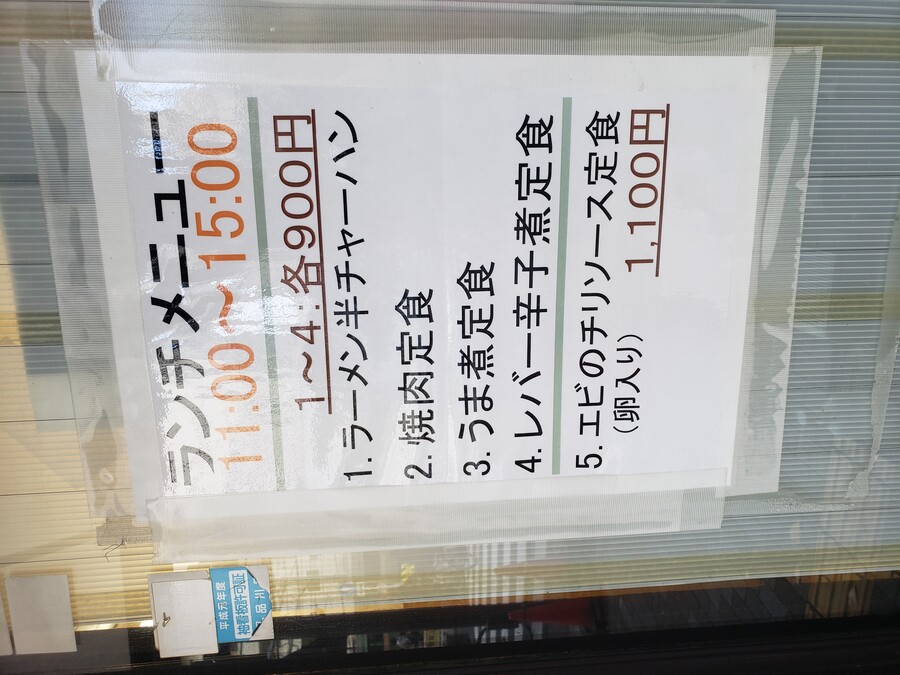 ランチメニュー
11:00～15:00
1～4:各900円
1.ラーメン半チャーハン
2.焼肉定食
3.うま煮定食
4.レバー辛子煮定食
5.エビのチリソース定食
(卵入り)
1,100円
平成元年度
袖看板許可証
品川